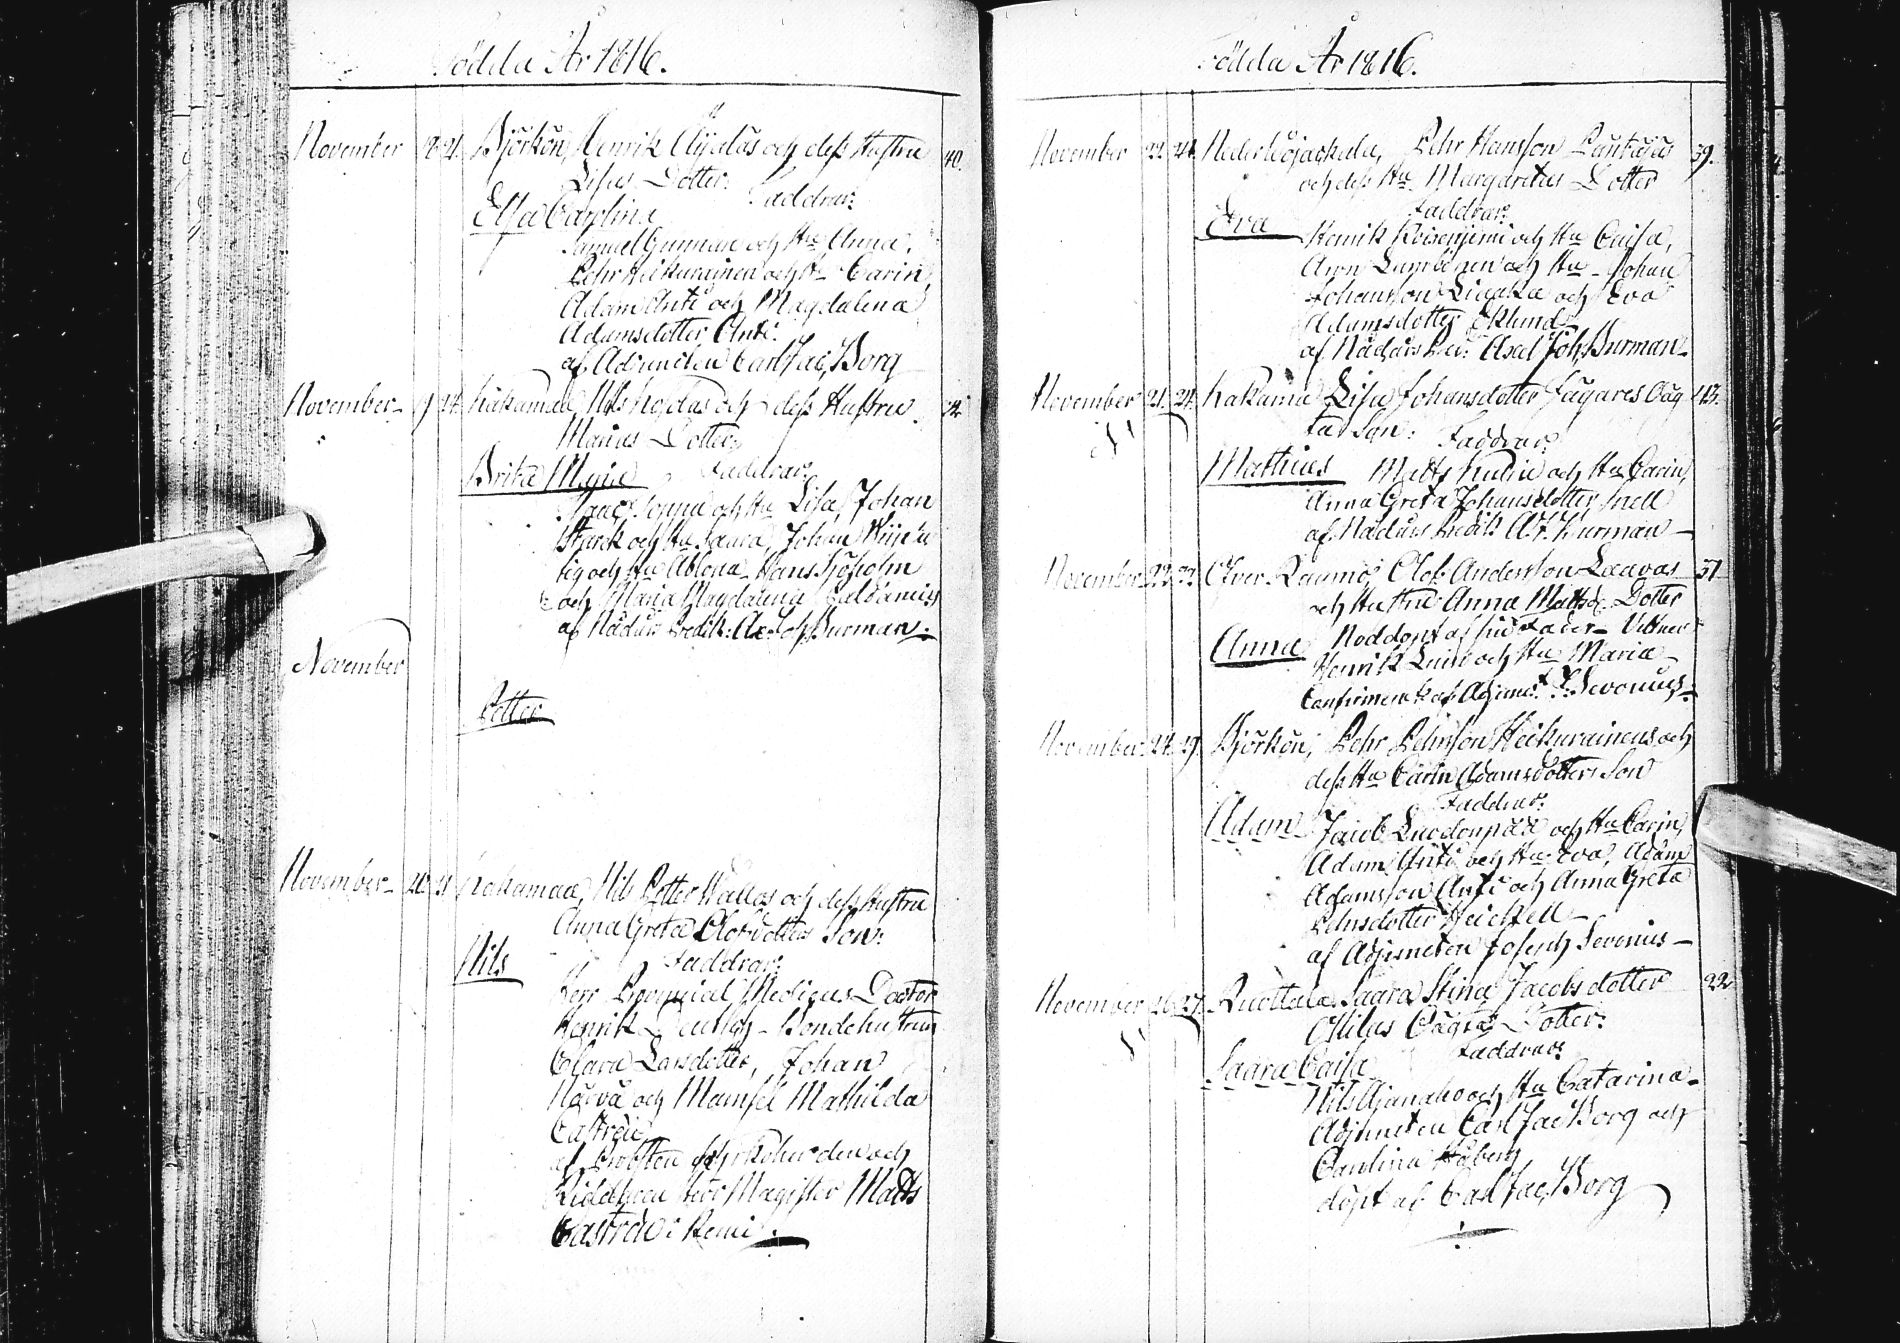 Födda År 1816.
November 18 21. Björkön, Henrik Ojalas och dess Hustru 40.
Lisas Dotter:
Faddrar:
Elsa Carolina
Samuel Gunnari och Hu Anna,
Pehr Heikurainen och Hu Carin,
Adam Anti och Magdalena
Adamsdotter Anti:
af Adjuncten Carl Jac. Borg
November 19 24. Kakamaa, Nils och dess Hustru
Marias Dotter:
Faddrar:
Brita Maja
Isaac och Hu Lisa, Johan
Starck och Hu Saara, Johan
tig och Hu Ablona Hans Sjöholm
och Maria Magdalena
af Nådårs Predik: Ax: Joh. Burman:
November
Petter
November 20 21 Kakamaa, Nils Petter Wallas och dess Hustru
Anna Greta Olofsdotters Son:
Nils
Faddrar:
Herr Provincial Medicus Doctor
Henrik Deutsch Bondehustrun
Clara Larsdotter, Johan
och Mamsel Mathilda
Castrén
af Probsten Kyrkoherden och
Riddaren Herr Magister Matts
Castrén i Kemi
Födda År 1816.
November 22. 24. Neder Wojackala, Pehr Hansson 39.
och dess Hu Margaretas Dotter
Faddrar:
Eva
Henrik Koivenjemi och Hu Caisa,
Aron och Hu Johan
Johansson Liaka och Eva
Adamsdotter Eklund
af Nådårs Pred: Axel Joh. Burman
November 21. 24. Kakama Lisa Johansdotter Fågares Oäg- 43.
ta Son:
Faddrar:
Mathias
Matts och Hu Carin,
Anna Greta Johansdotter Snell
af Nådårs Predik: A. J. Burman
November 22. 22. Öfver Raumo, Olof Andersson Laavas 31
och Hustru Anna Mattsd: Dotter
Anna
Nöddöpt af sin Fader Vittnen
Henrik och Hu Maria
Confirmerat af Adjunct: J. Sevonius:
November 24. 29. Björkön, Pehr Pehrsson Heikurainens och
dess Hu Carin Adamsdotters Son
Faddrar:
Adam
Jacob Luodonpää och Hu Carin,
Adam Anti och Hu Eva, Adam
Adamsson Anti och Anna Greta
Pehrsdotter Heickell
af Adjuncten Joseph Sevonius
November 26 27. Ruottala Saara Stina Jacobsdotter 22
Ollilas Oägta Dotter:
Faddrar:
Saara Caisa
Nils Ajanaho och Hu Catarina
Adjuncten Carl Jac Borg och
Carolina Höberg
döpt af Carl Jac. Borg